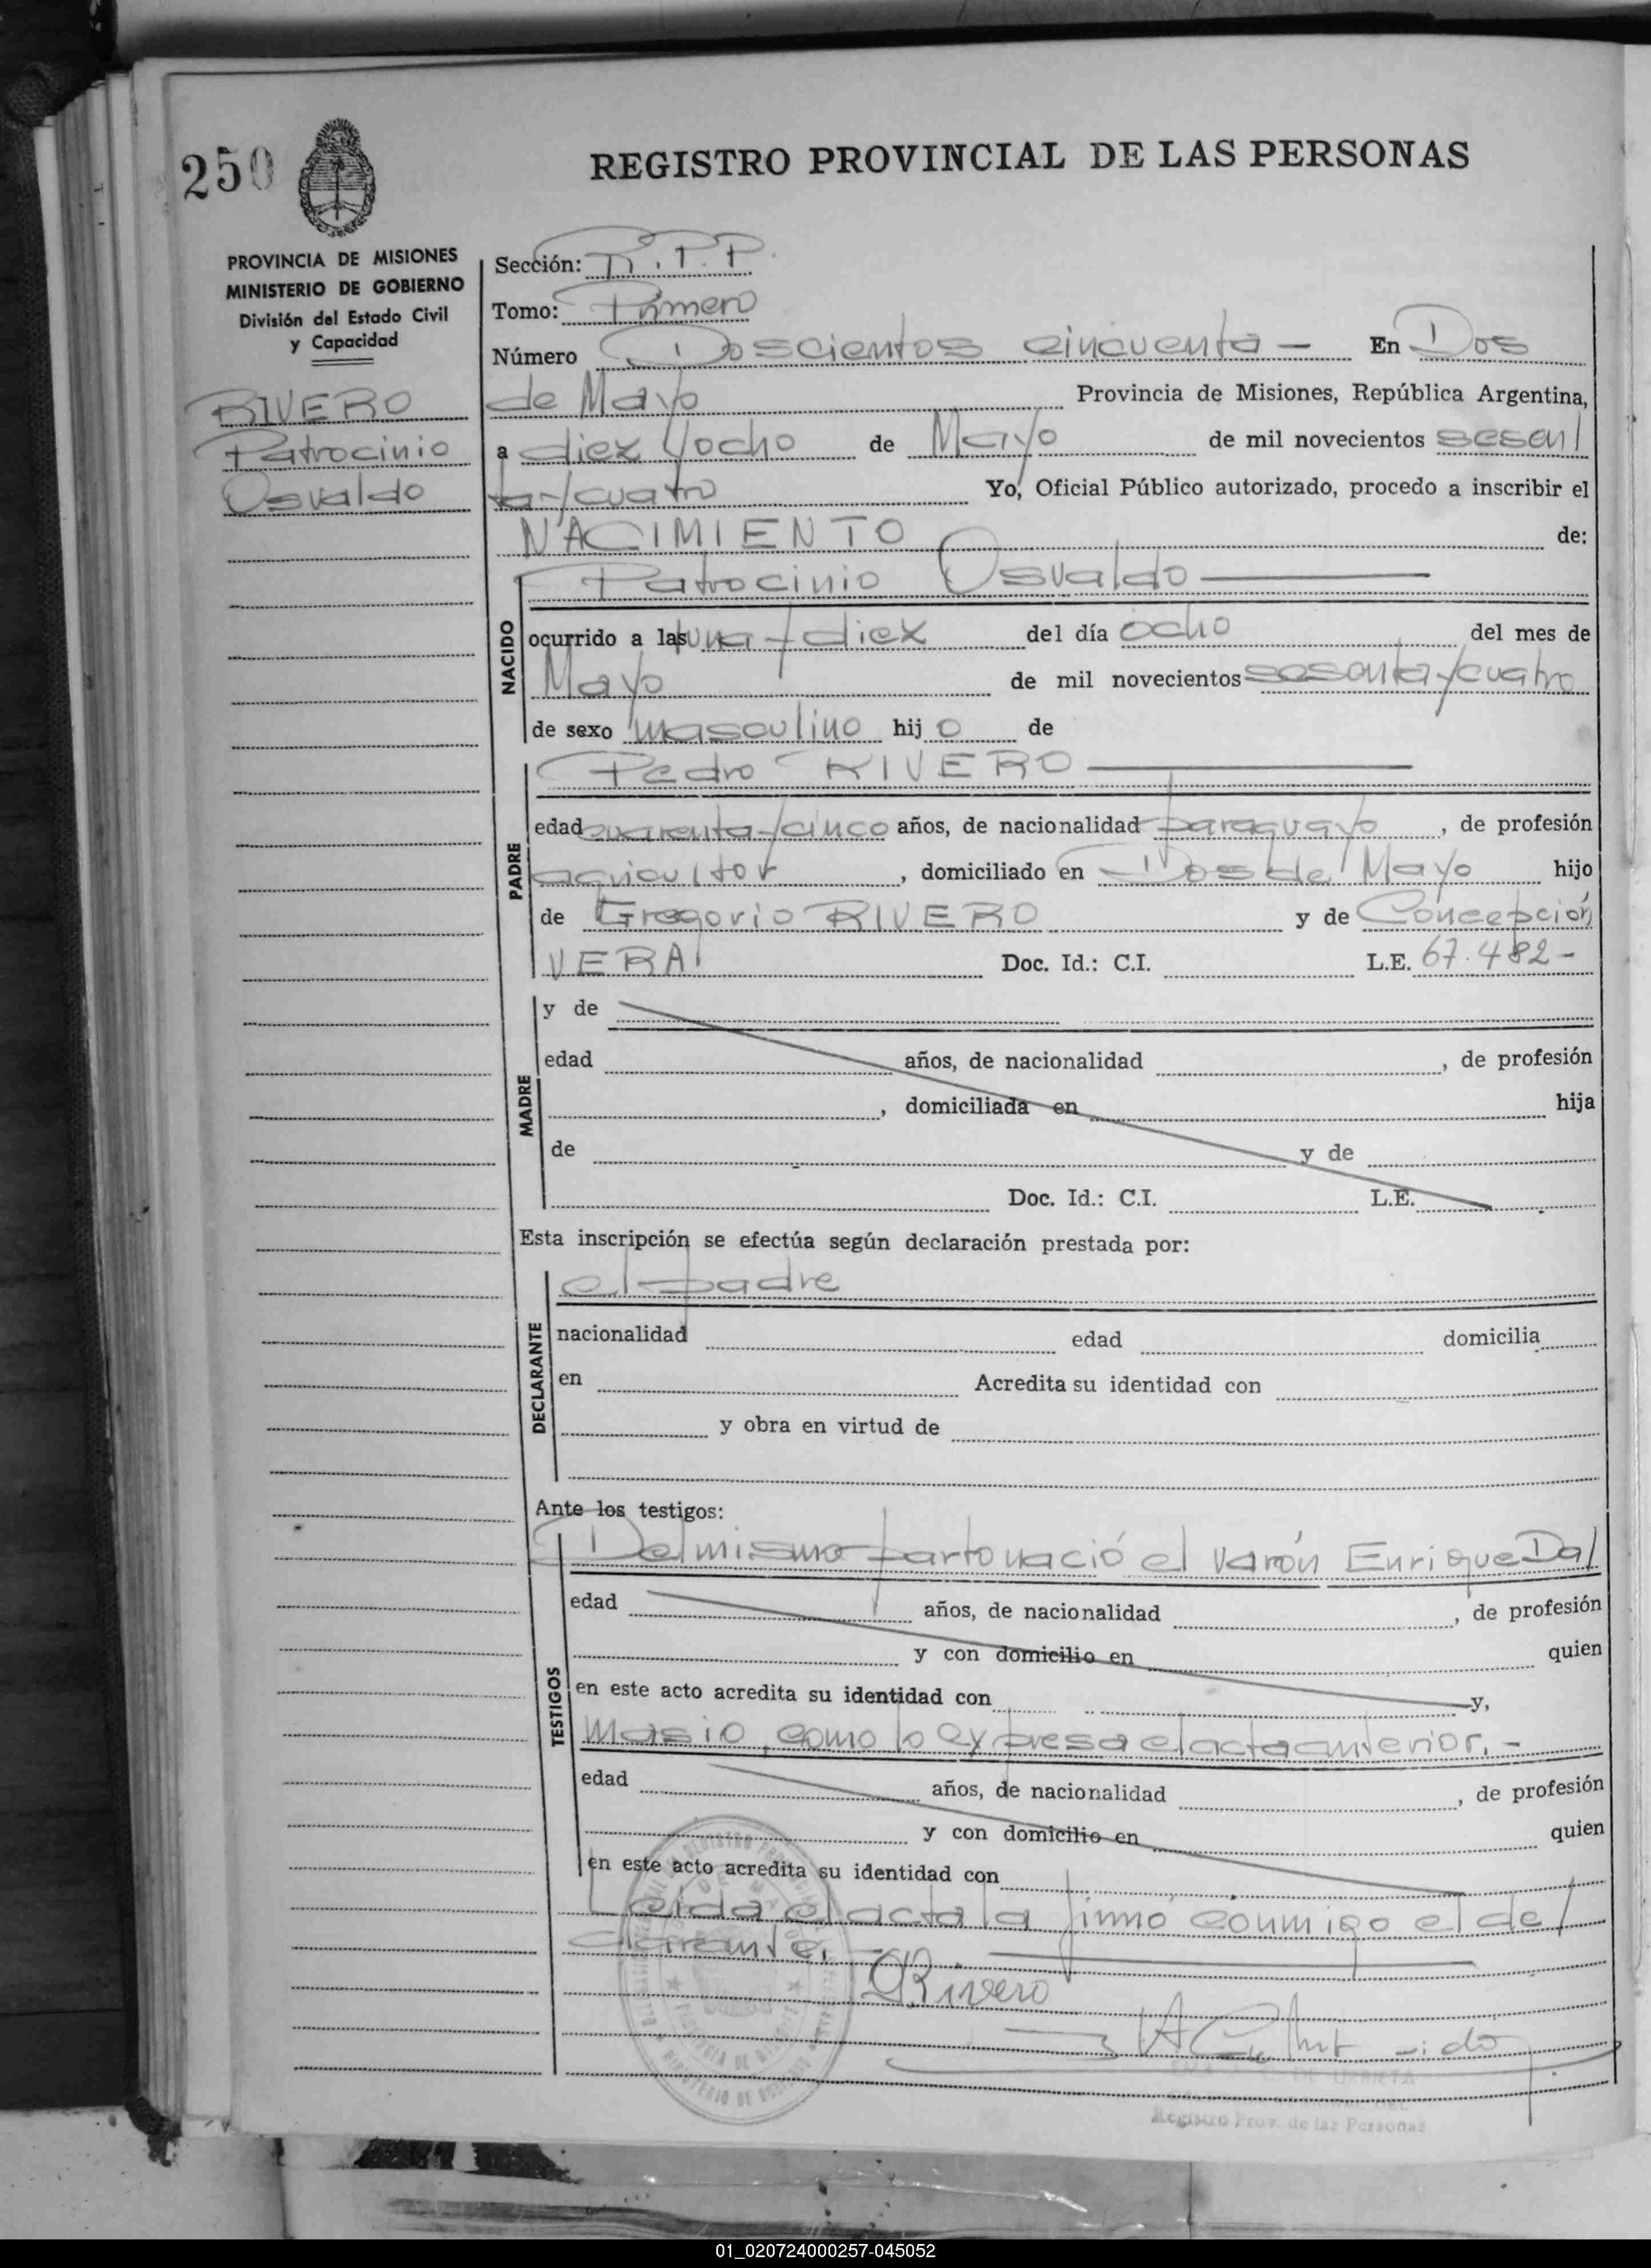 250
REGISTRO PROVINCIAL DE LAS PERSONAS
PROVINCIA DE MISIONES
MINISTERIO DE GOBIERNO
División del Estado Civil
y Capacidad
RIVERO
Patrocinio
Osvaldo
Sección: R.P.P.
Tomo: Primero
Número Doscientos cincuenta — En Dos
de Mayo Provincia de Misiones, República Argentina,
a diez y ocho de Mayo de mil novecientos sesen/
ta y cuatro Yo, Oficial Público autorizado, procedo a inscribir el
NACIMIENTO de:
NACIDO
Patrocinio Osvaldo
ocurrido a las una y diez del día ocho del mes de
Mayo de mil novecientos sesenta y cuatro
de sexo masculino hij o de
PADRE
Pedro RIVERO
edad cuarenta y cinco años, de nacionalidad paraguayo, de profesión
agricultor, domiciliado en Dos de Mayo hijo
de Gregorio RIVERO y de Concepción
VERA Doc. Id.: C.I. L.E. 67.482 -
MADRE
y de
edad años, de nacionalidad , de profesión
, domiciliada en hija
de y de
Doc. Id.: C.I. L.E.
Esta inscripción se efectúa según declaración prestada por:
DECLARANTE
el padre
nacionalidad edad domicilia
en Acredita su identidad con
y obra en virtud de
Ante los testigos:
TESTIGOS
Del mismo parto nació el varón Enrique Dal/
edad años, de nacionalidad , de profesión
y con domicilio en quien
en este acto acredita su identidad con y,
masio, como lo expresa el acta anterior. -
edad años, de nacionalidad , de profesión
y con domicilio en quien
en este acto acredita su identidad con
Leida el acta la firmó conmigo el de/
clarante. —
Rivero
DE URRIETA
Registro Prov. de las Personas
01_020724000257-045052